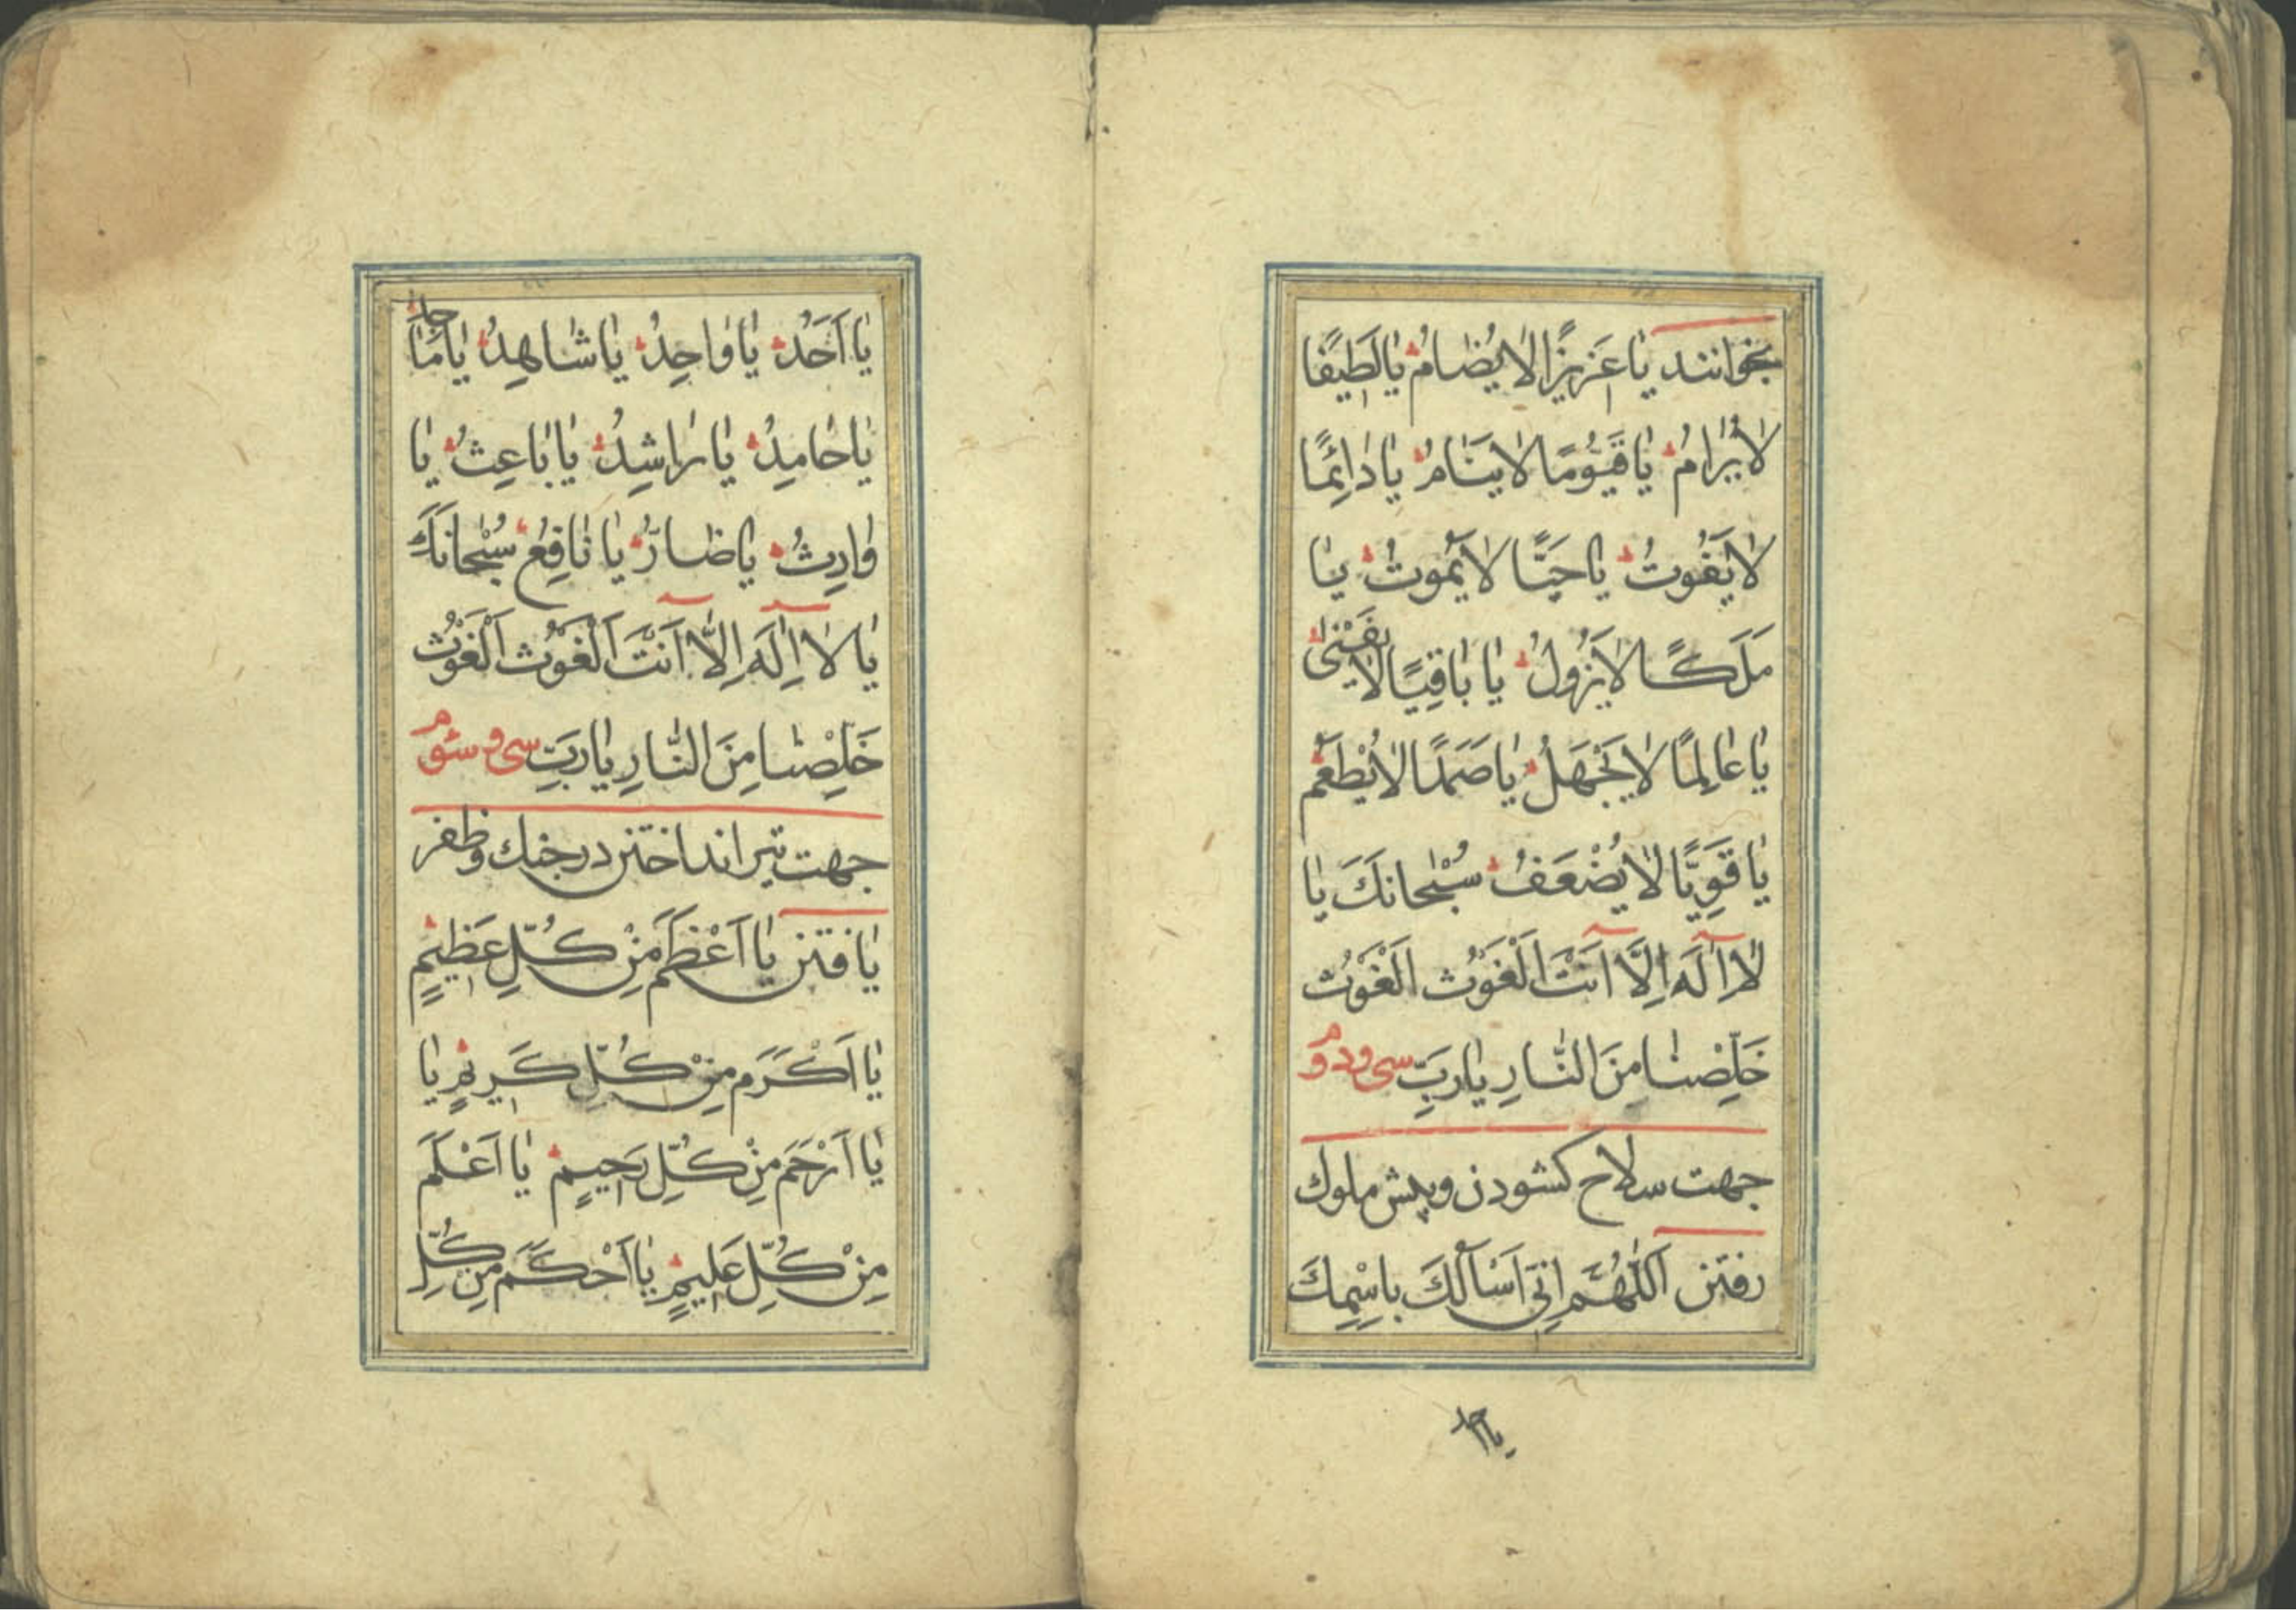 بخوانند يٰا عَزيزًا لاٰ يُضٰامُ يٰا لَطيٖفًا
لاٰ يُرٰامُ يٰا قَيُّومًا لاٰ يَنٰامُ يٰا دٰائِمًا
لاٰ يَفُوتُ يٰا حَيًّا لاٰ يَمُوتُ يٰا
مَلَكًا لاٰ يَزُولُ يٰا بٰاقِيًا لاٰ يَفْنٰى
يٰا عٰالِمًا لاٰ يَجْهَلُ يٰا صَمَدًا لاٰ يُطْعَمُ
يٰا قَوِيًّا لاٰ يُضْعَفُ سُبْحٰانَكَ يٰا
لاٰ اِلٰهَ اِلَّا اَنْتَ اَلْغَوْثَ اَلْغَوْثَ
خَلِّصْنٰا مِنَ النّٰارِ يٰا رَبِّ سی و دوم
جهت سلاح کشودن و پیش ملوک
رفتن اَللّٰهُمَّ اِنّٖي اَسْأَلُكَ بِاسْمِكَ
يا احد
يٰا اَحَدُ يٰا وٰاحِدُ يٰا شٰاهِدُ يٰا مٰاجِدُ
يٰا حٰامِدُ يٰا رٰاشِدُ يٰا بٰاعِثُ يٰا
وٰارِثُ يٰا ضٰارُّ يٰا نٰافِعُ سُبْحٰانَكَ
يٰا لاٰ اِلٰهَ اِلَّا اَنْتَ اَلْغَوْثَ اَلْغَوْثَ
خَلِّصْنٰا مِنَ النّٰارِ يٰا رَبِّ سی و سوم
جهت تیر انداختن در جنك و ظفر
یافتن يٰا اَعْظَمَ مِنْ كُلِّ عَظيٖمٍ
يٰا اَكْرَمَ مِنْ كُلِّ كَريٖمٍ يٰا
يٰا اَرْحَمَ مِنْ كُلِّ رَحيٖمٍ يٰا اَعْلَمَ
مِنْ كُلِّ عَليٖمٍ يٰا اَحْكَمَ مِنْ كُلِّ